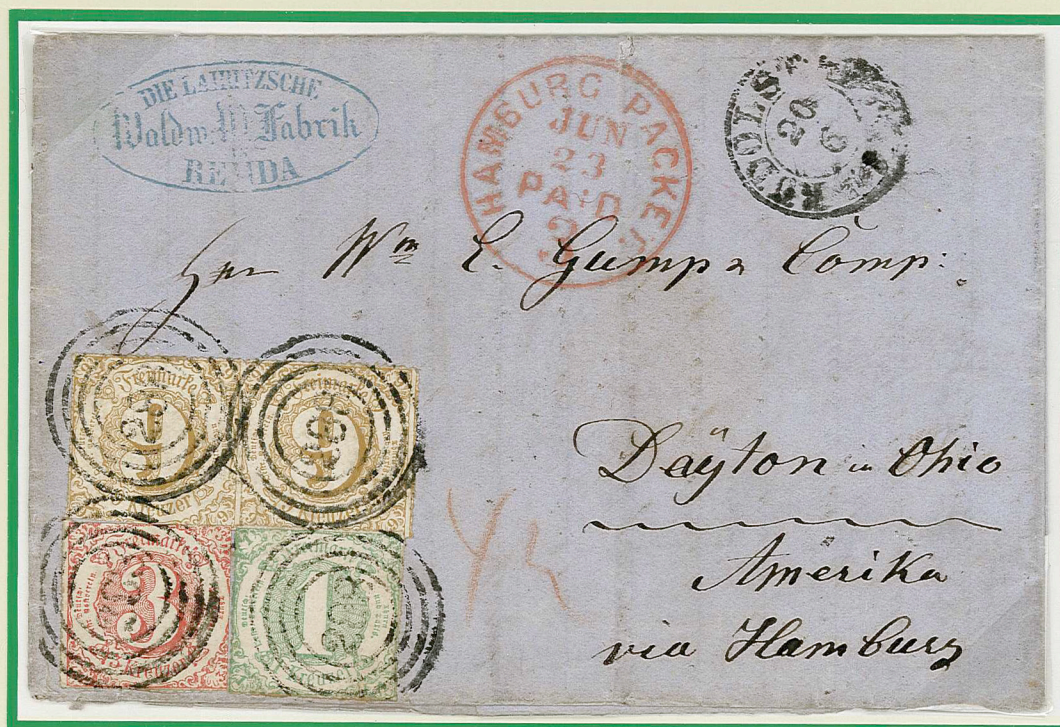 DIE LAIRITZSCHE
Waldw. Fabrik
REMDA
HAMBURG PACKET
JUN
23
PAID
3
RUDOLST
20
6
Herr Wm E. Gump & Comp:
Daÿton in Ohio
Amerika
via Hamburg
Freimarke
9
Kreuzer
Freimarke
9
Kreuzer
Freimarke
3
3 Kreuzer
1
Kreuzer